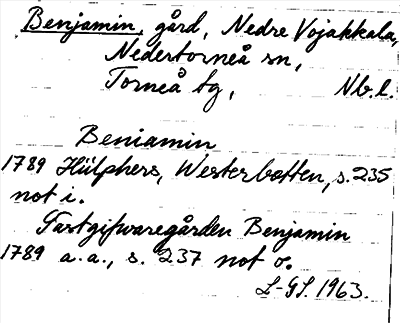 Benjamin, gård, Nedre Vojakkala,
Nedertorneå sn,
Torneå tg, Nb.l.
Beniamin
1789 Hülphers, Westerbotten, s. 235
not i.
Gastgifvaregården Benjamin
1789 a.a., s. 237 not o.
L-GS. 1963.